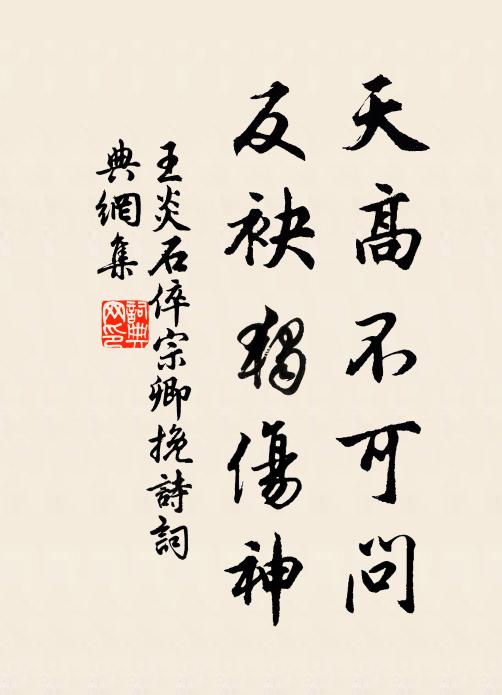 天高不可問
反袂獨傷神
王炎石倅宗卿挽詩詞
典網集
詞典網印